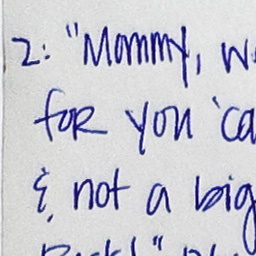 2: "Mommy, w
for you 'ca
& not a big